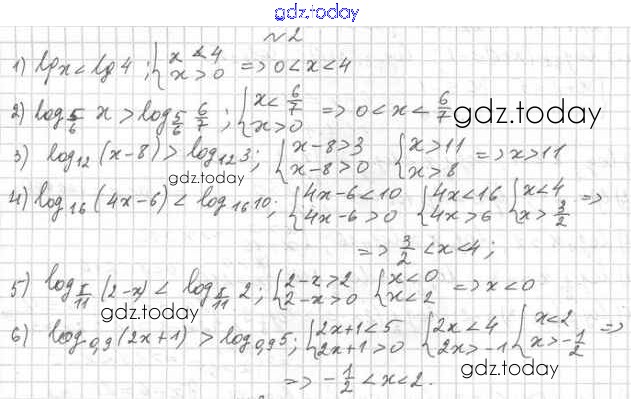 gdz.today
№2
1) lg x < lg 4 ; { x < 4 x > 0 => 0 < x < 4
2) log_{5/6} x > log_{5/6} 6/7 ; { x < 6/7 x > 0 => 0 < x < 6/7
gdz.today
3) log_{12} (x-8) > log_{12} 3 ; { x-8>3 x-8>0 { x>11 x>8 => x>11
gdz.today
4) log_{16} (4x-6) < log_{16} 10 ; { 4x-6<10 4x-6>0 { 4x<16 4x>6 { x<4 x>3/2 =>
=> 3/2 < x < 4 ;
5) log_{π/11} (2-x) < log_{π/11} 2 ; { 2-x>2 2-x>0 { x<0 x<2 => x<0
gdz.today
6) log_{0,9} (2x+1) > log_{0,9} 5 ; { 2x+1<5 2x+1>0 { 2x<4 2x>-1 { x<2 x>-1/2 =>
gdz.today
=> -1/2 < x < 2.